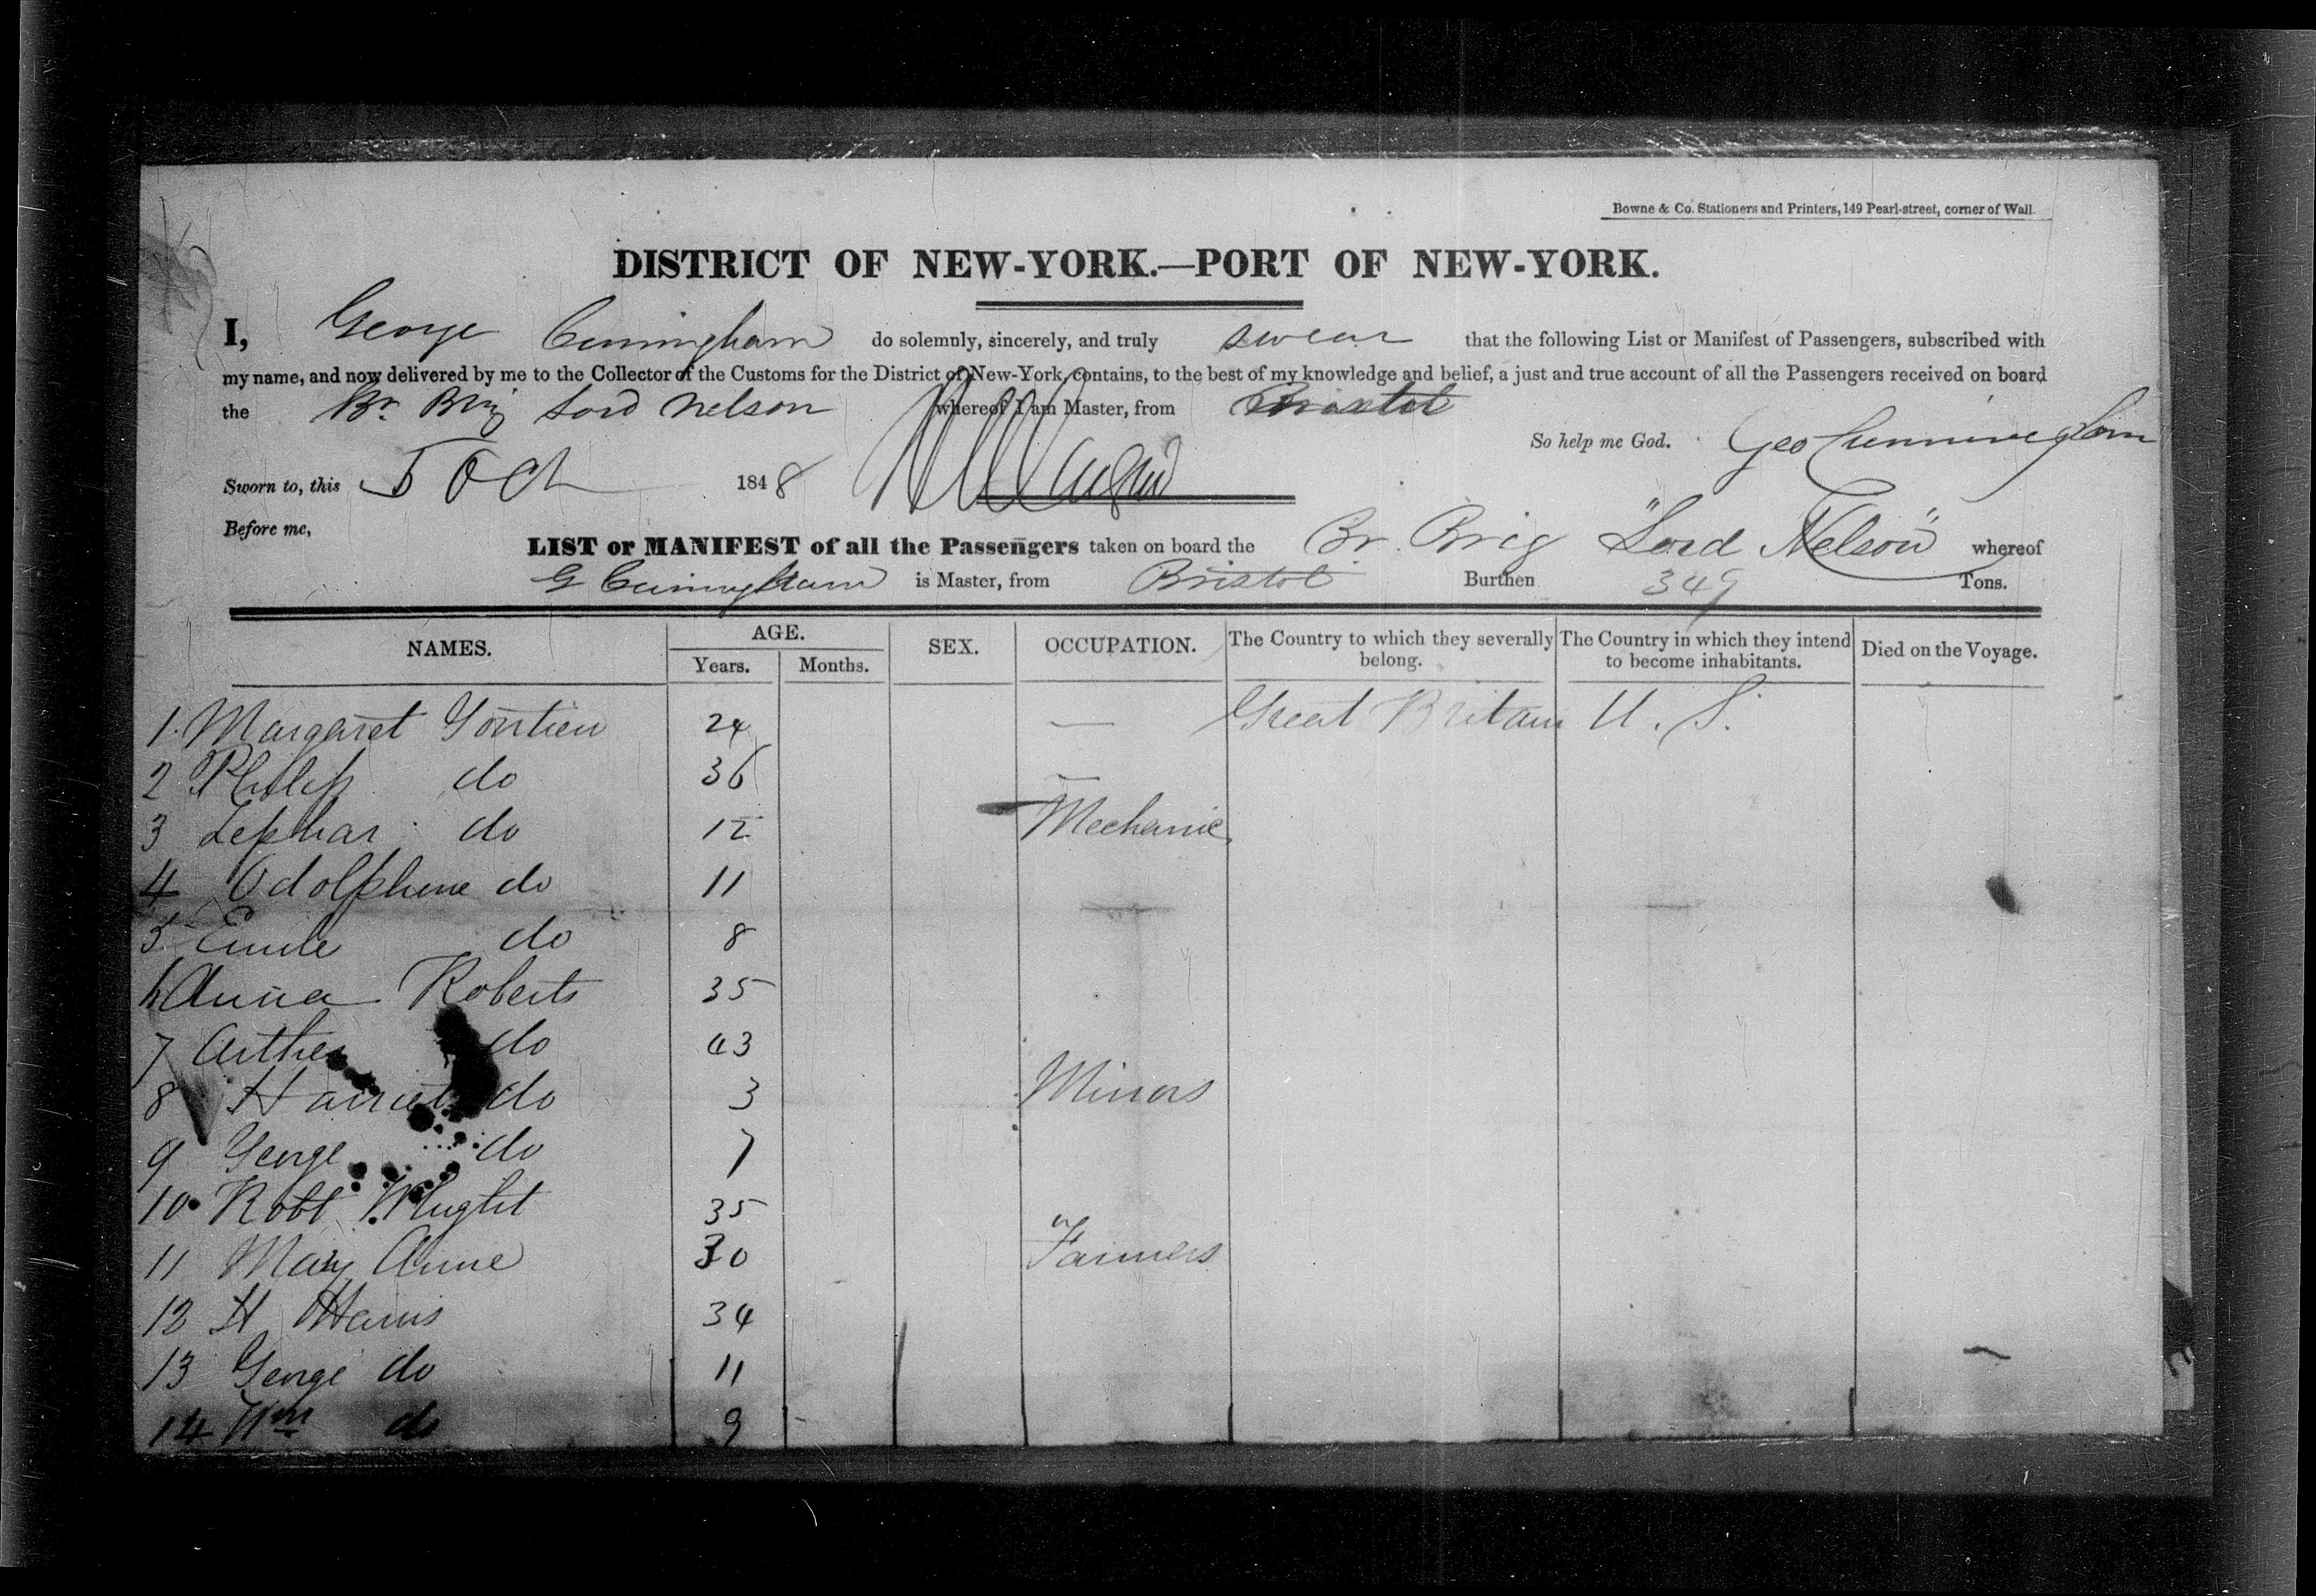 Bowne & Co. Stationers and Printers, 149 Pearl-street, corner of Wall.
DISTRICT OF NEW-YORK.—PORT OF NEW-YORK.
I, George Cuningham do solemnly, sincerely, and truly swear that the following List or Manifest of Passengers, subscribed with
my name, and now delivered by me to the Collector of the Customs for the District of New-York, contains, to the best of my knowledge and belief, a just and true account of all the Passengers received on board
the Br. Brig Lord Nelson whereof I am Master, from Bristol
So help me God. Geo Cunningham
Sworn to, this 5 Oct 1848
Before me,
LIST or MANIFEST of all the Passengers taken on board the Br. Brig "Lord Nelson" whereof
G Cuningham is Master, from Bristol Burthen 349 Tons.
NAMES. AGE. Years. Months. SEX. OCCUPATION. The Country to which they severally belong. The Country in which they intend to become inhabitants. Died on the Voyage.
1. Margaret 24 — Great Britain U. S.
2 Philip do 36
3 Zephar do 12 Mechanic
4 Odolphine do 11
5 Emile do 8
6 Anna Roberts 35
7 Arther do 43
8 Harriet do 3 Minors
9 George do 7
10 Robt Wright 35
11 Mary Anne 30 " Farmers
12 H Harris 34
13 George do 11
14 Wm do 9